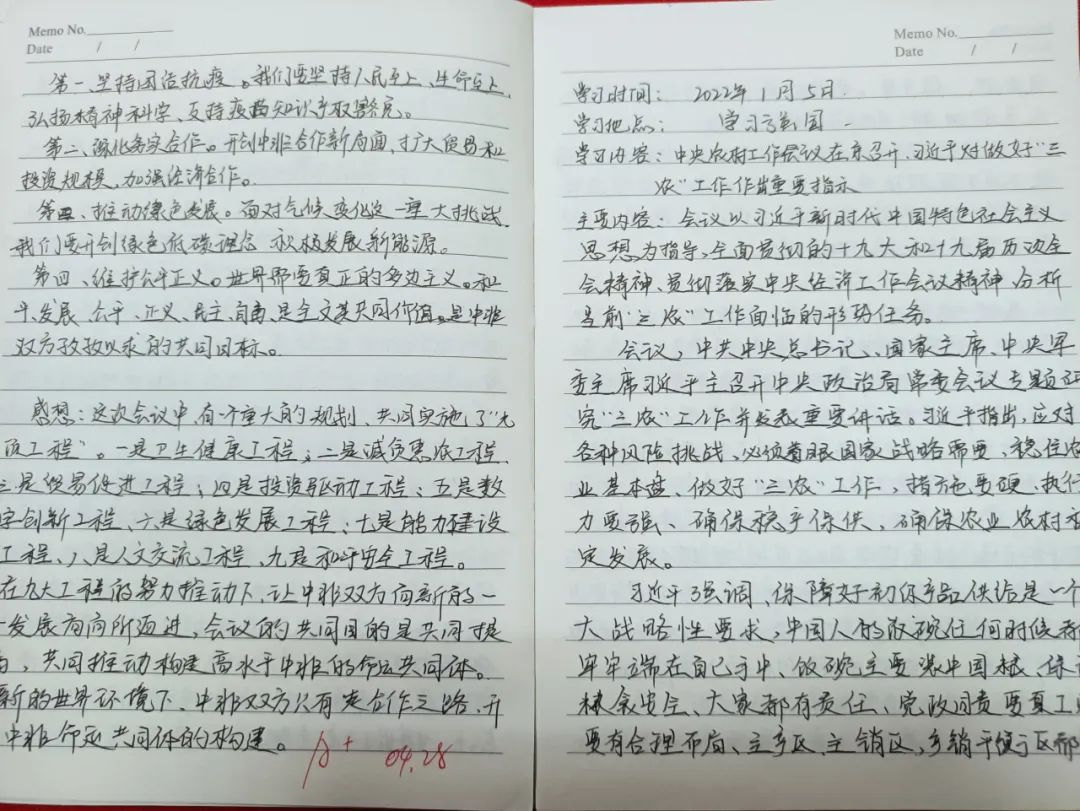 Memo No.
Date / /
第一、坚持团结抗疫。我们要坚持人民至上、生命至上,
弘扬精神科学、支持疫苗知识产权豁免。
第二、深化务实合作。开创中非合作新局面,扩大贸易和
投资规模,加强经济合作。
第四、推动绿色发展。面对气候变化这一重大挑战,
我们要开创绿色低碳理念 积极发展新能源。
第四、维护公平正义。世界需要真正的多边主义。和
平、发展、公平、正义、民主、自由是全人类共同价值。是中非
双方孜孜以求的共同目标。
感想:这次会议中,有一个重大的规划、共同实施了"九
项工程"。一是卫生健康工程;二是减负惠农工程,
三是贸易促进工程;四是投资驱动工程;五是数
字创新工程、六是绿色发展工程;七是能力建设
工程,八是人文交流工程,九是和平安全工程。
在九大工程的努力推动下,让中非双方向新的一
发展方向所迈进,会议的共同目的是共同提
,共同推动构建高水平中非的命运共同体。
新的世界环境下、中非双方只有走合作之路、开
中非命运共同体的构建。
A+ 04.28
Memo No.
Date / /
学习时间: 2022年1月5日.
学习地点: 学习强国.
学习内容:中央农村工作会议在京召开,习近平对做好"三
农"工作作出重要指示
主要内容:会议以习近平新时代中国特色社会主义
思想为指导,全面贯彻的十九大和十九届历次全
会精神、贯彻落实中央经济工作会议精神,分析
当前"三农"工作面临的形势任务。
会议,中共中央总书记、国家主席、中央军
委主席习近平主召开中央政治局常委会议专题研
究"三农"工作并发表重要讲话。习近平指出,应对
各种风险挑战,必须着眼国家战略需要,稳住农
业基本盘、做好"三农"工作,措施要硬,执行
力要强、确保稳产保供、确保农业农村稳
定发展。
习近平强调,保障好初级产品供给是一个
大战略性要求,中国人的饭碗任何时候都
牢牢端在自己手中、饭碗主要装中国粮、保
粮食安全、大家都有责任、党政同责要真工
要有合理布局、主产区、主销区,产销平衡区都